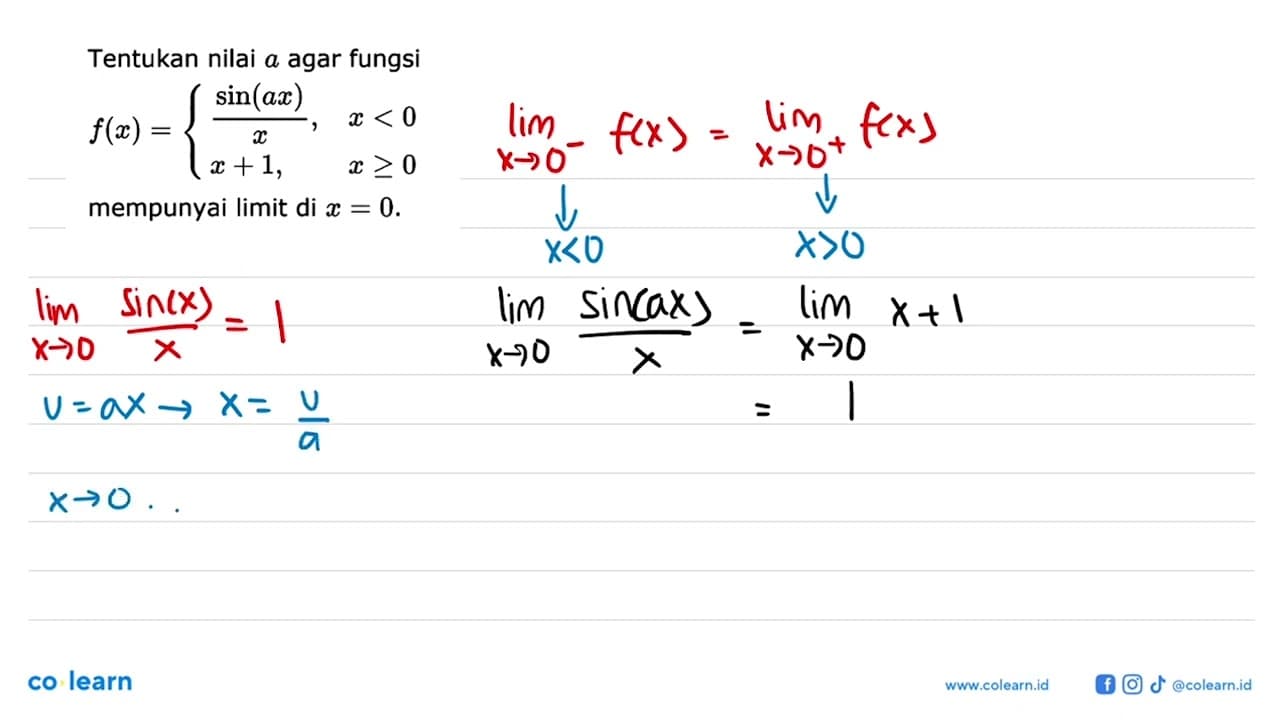 Tentukan nilai a agar fungsi
f(x) = { sin(ax)/x, x < 0
x + 1, x ≥ 0
mempunyai limit di x = 0.
lim x→0⁻ f(x) = lim x→0⁺ f(x)
↓ ↓
x<0 x>0
lim x→0 sin(x)/x = 1
lim x→0 sin(ax)/x = lim x→0 x+1
= 1
u = ax → x = u/a
x→0 . .
co·learn
www.colearn.id
@colearn.id